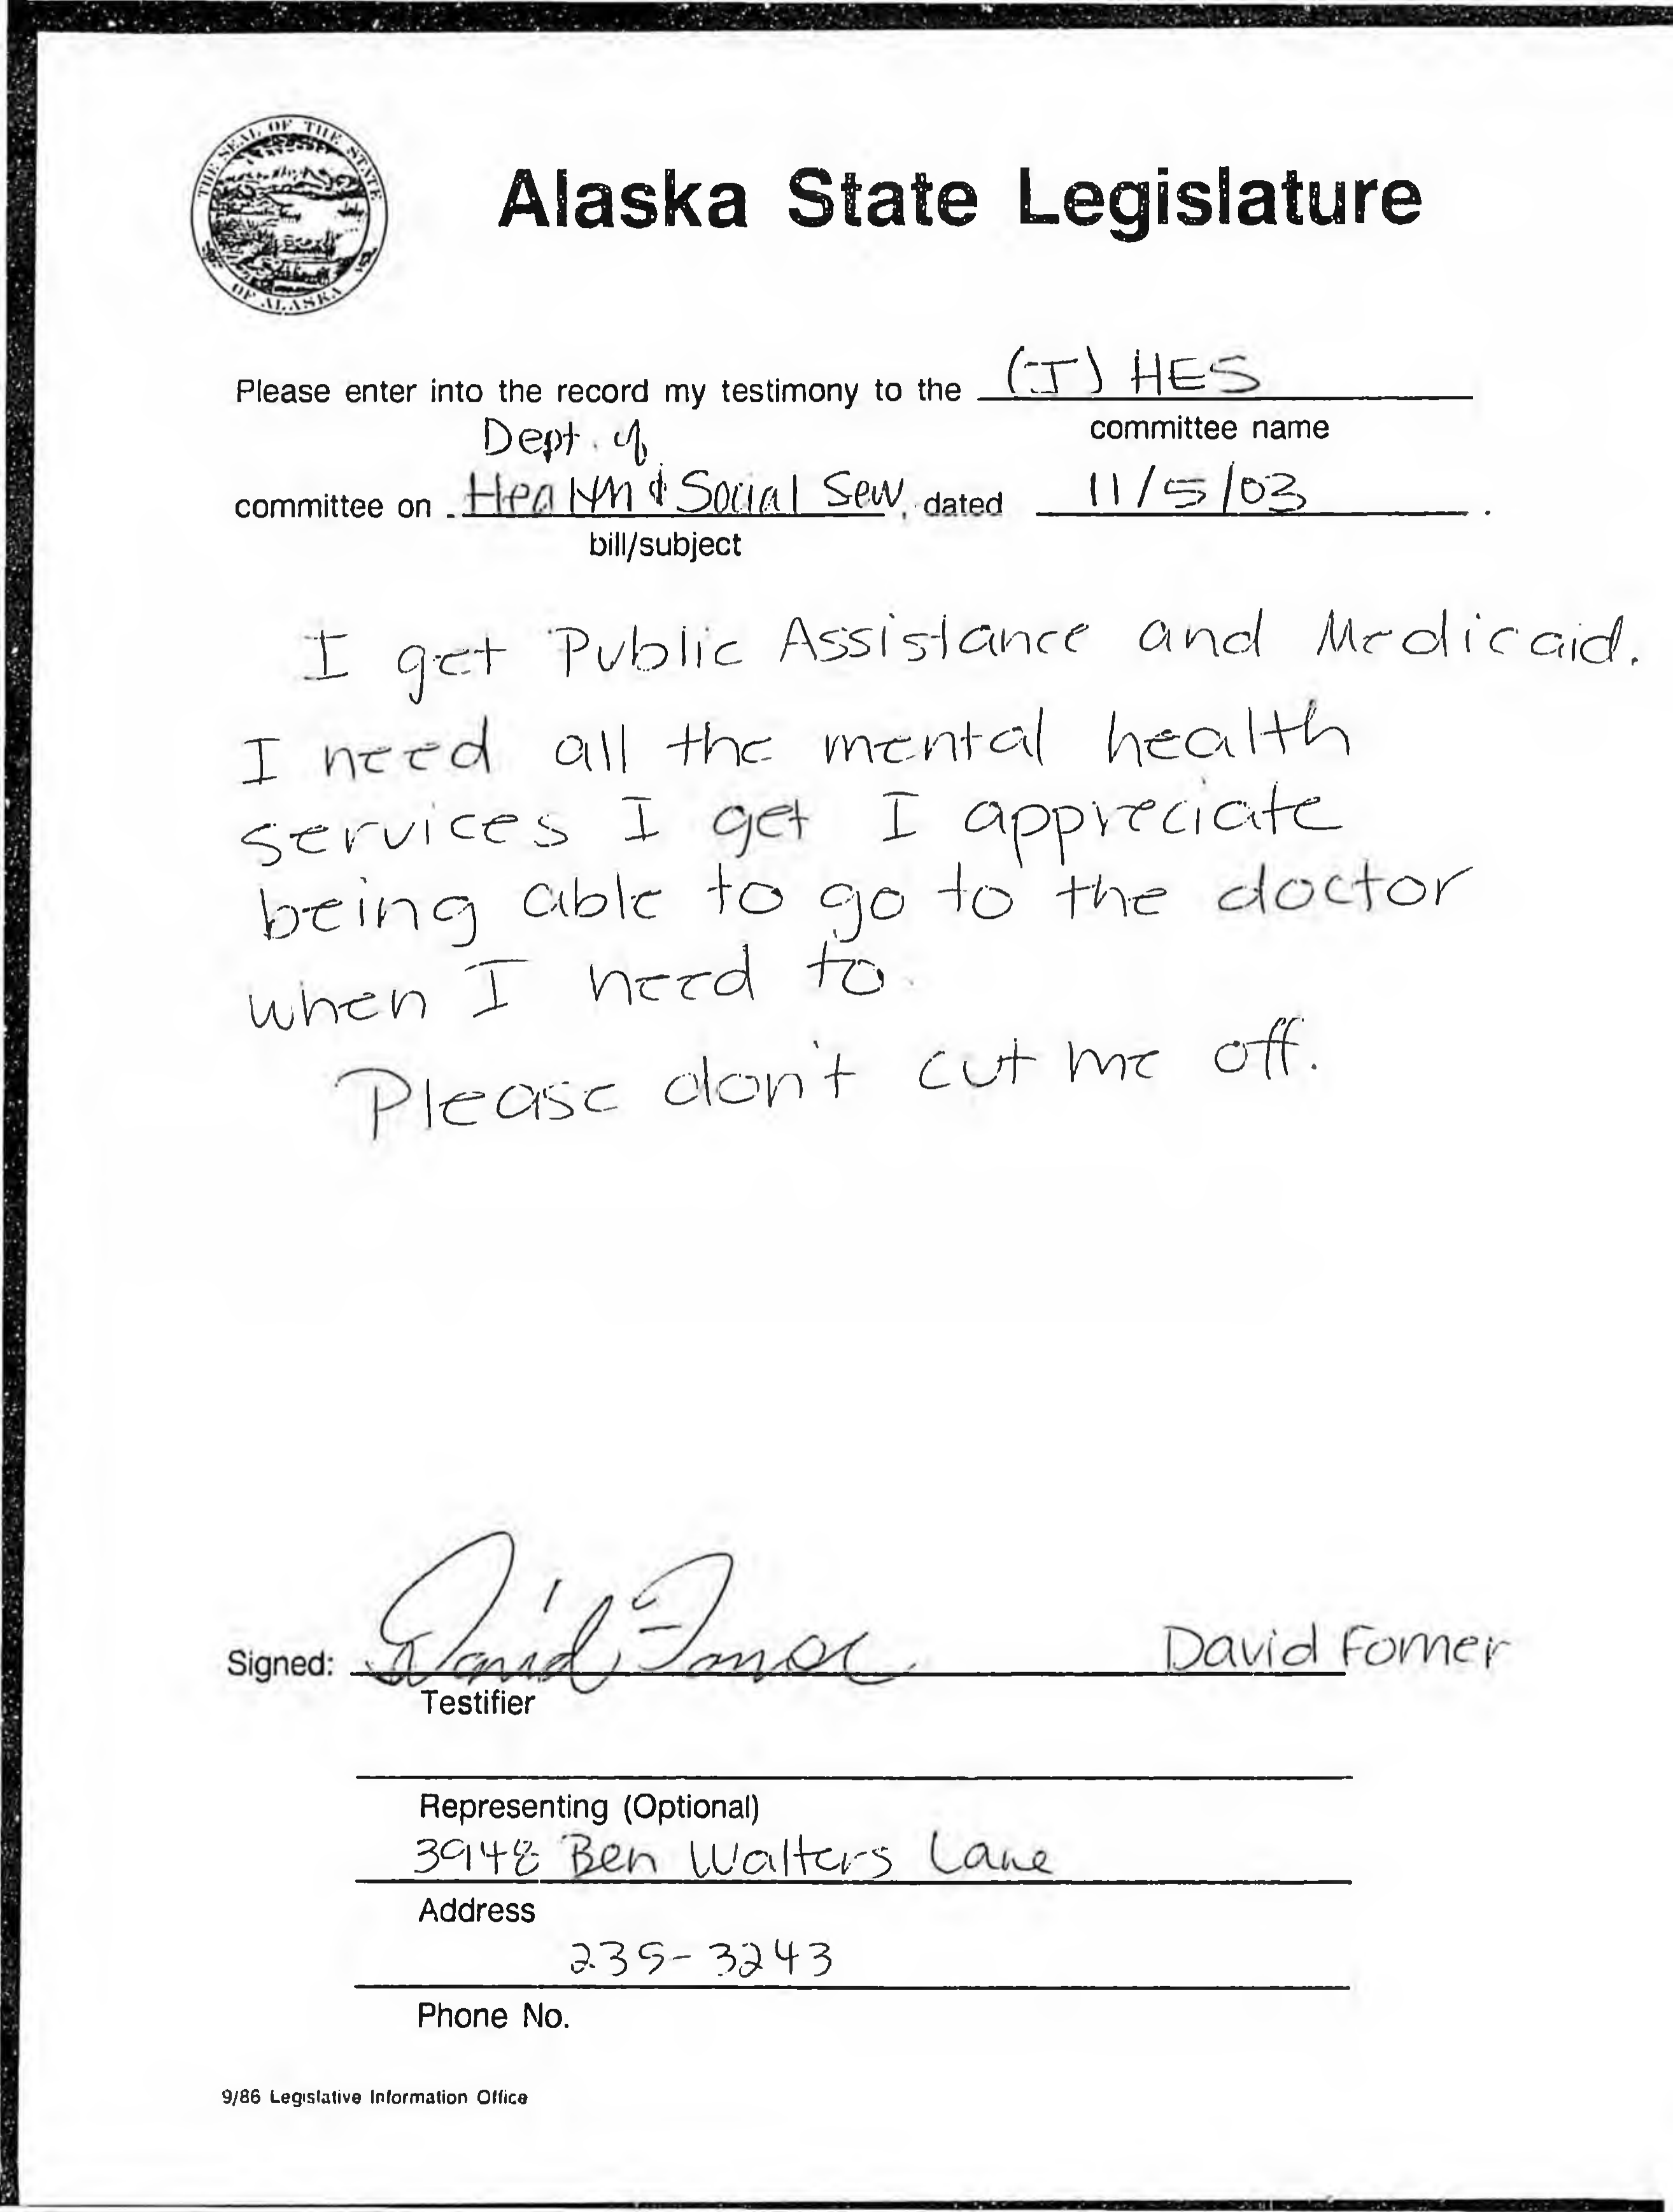 THE SEAL OF THE STATE OF ALASKA
Alaska State Legislature
Please enter into the record my testimony to the (J) HES
committee name
Dept. of
committee on Health & Social Serv, dated 11/5/03.
bill/subject
I get Public Assistance and Medicaid.
I need all the mental health
services I get I appreciate
being able to go to the doctor
when I need to.
Please don't cut me off.
Signed: David David
Testifier
Representing (Optional)
3948 Ben Walters Lane
Address
235-3243
Phone No.
9/86 Legislative Information Office